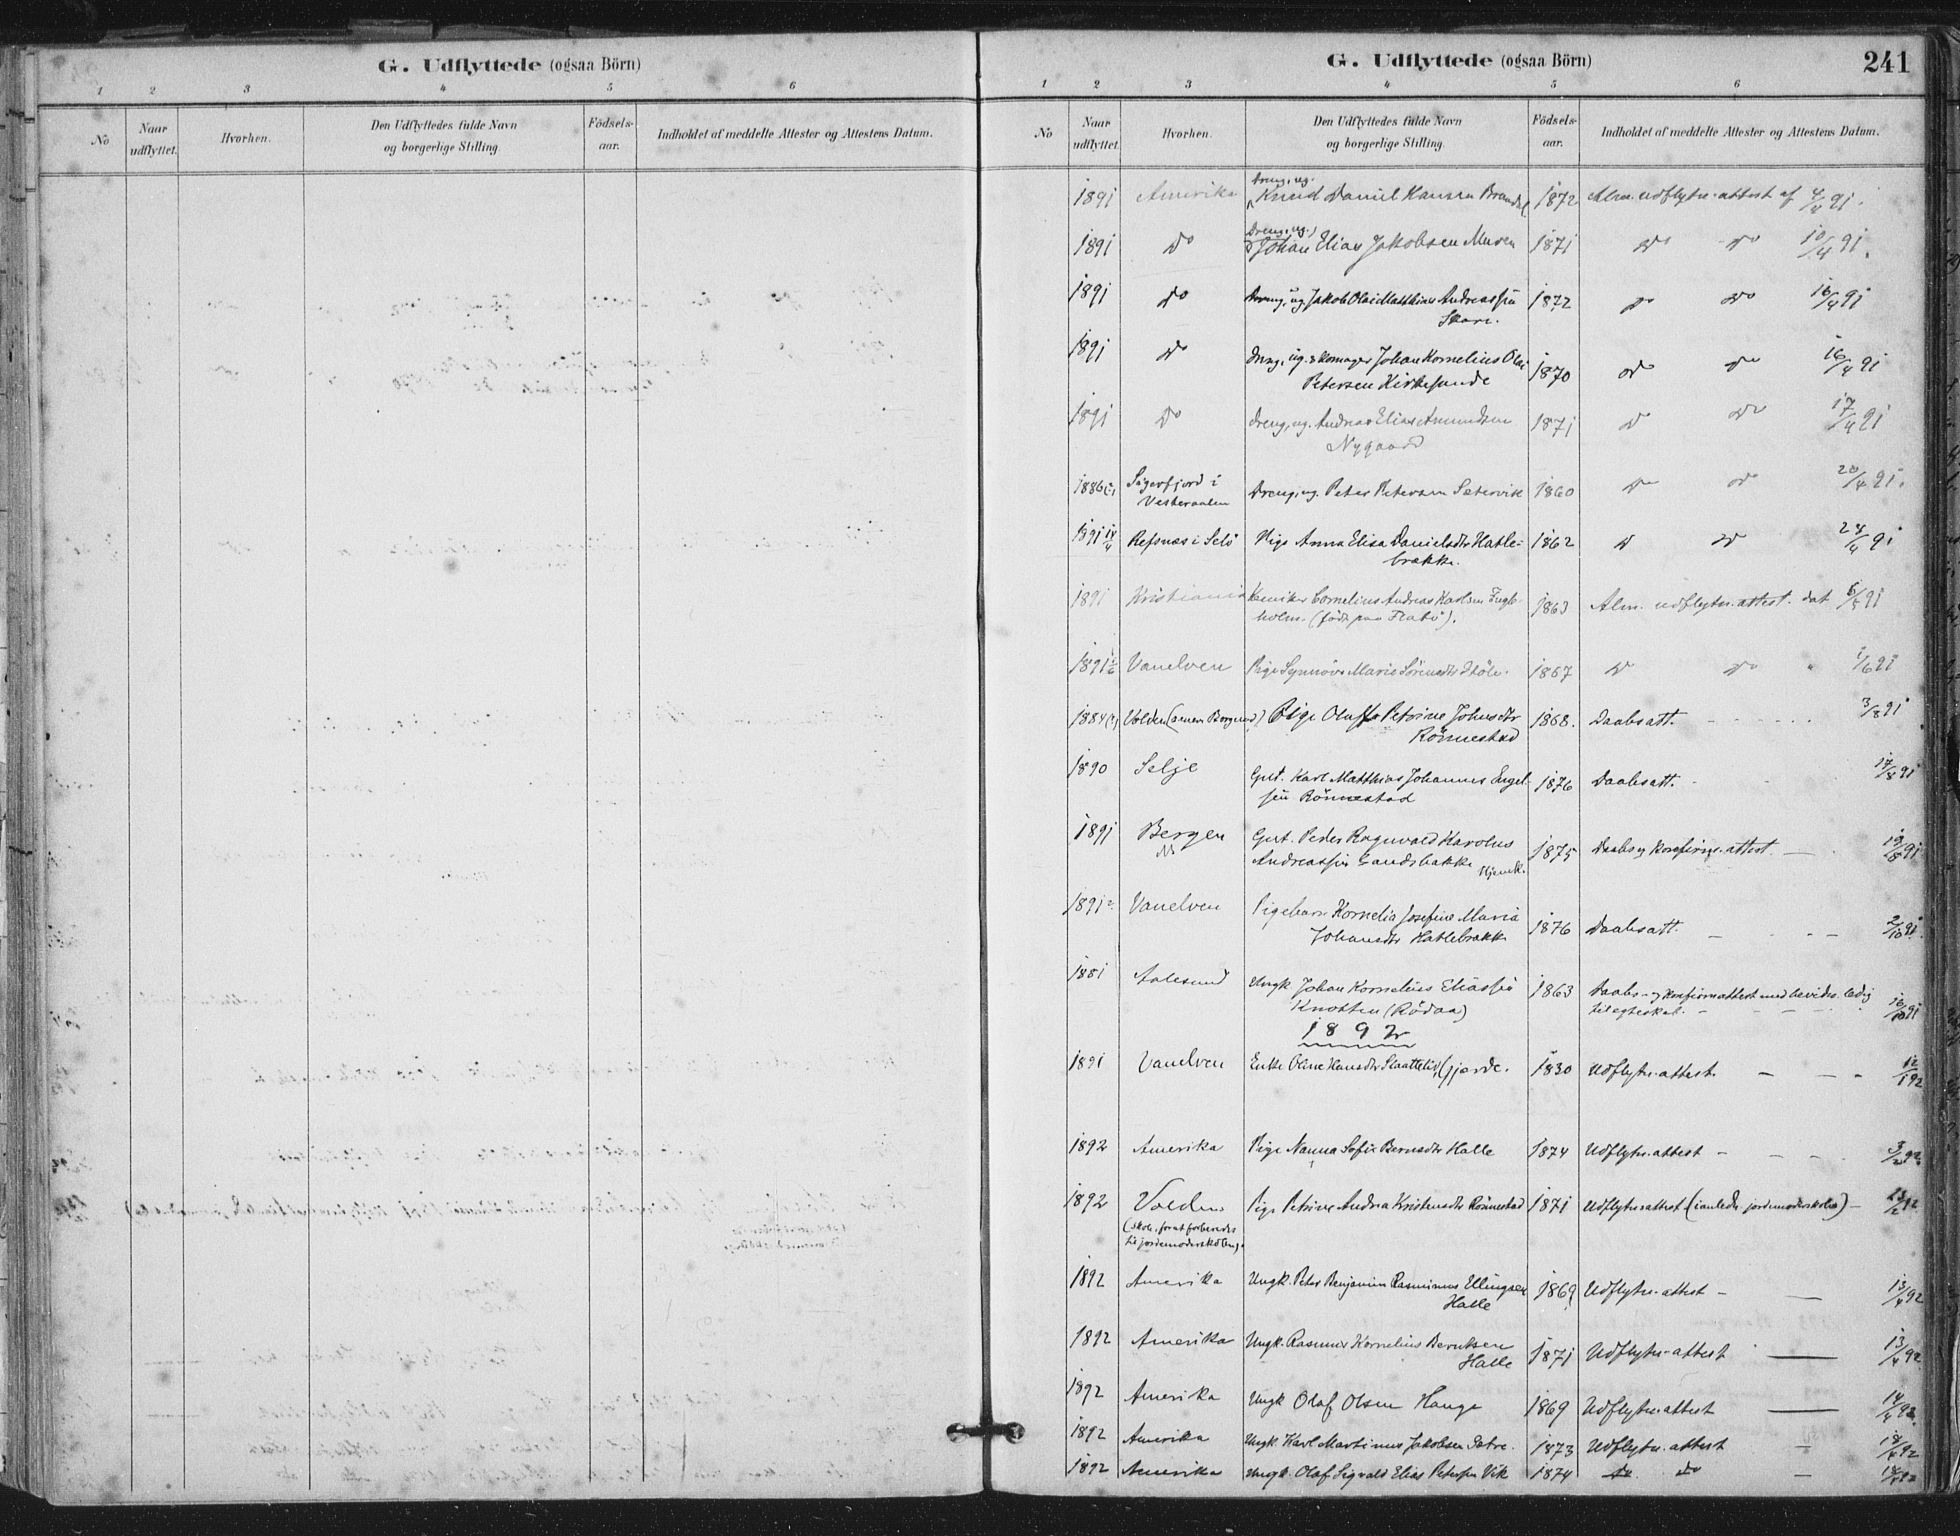 G. Udflyttede (ogsaa Börn)
1 2 3 4 5 6
No Naar udflyttet. Hvorhen. Den Udflyttedes fulde Navn og borgerlige Stilling. Födsels-aar. Indholdet af meddelte Attester og Attestens Datum.
G. Udflyttede (ogsaa Börn) 241
1 2 3 4 5 6
No Naar udflyttet. Hvorhen. Den Udflyttedes fulde Navn og borgerlige Stilling. Födsels-aar. Indholdet af meddelte Attester og Attestens Datum.
Dreng, ug.
1891 Amerika Knud Daniel Hansen Brandal 1872 Alm. udflytn. attest af 4/4 91.
Dreng, ug.
1891 Do Johan Elias Jakobsen Muren 1871 Do Do 10/4 91.
1891 Do Dreng, ug. Jakob Olai Matthias Andreassen 1872 Do Do 16/4 91
Skare.
1891 Do Dreng, ug. Johan Kornelius Olai
Petersen Kirkesunde 1870 Do Do 16/4 91
1891 Do Dreng, ug. Andreas Elias Amundsen 1871 Do Do 17/4 91
Nygaard
1886 Sigerfjord i
Vesteraalen Dreng, ug. Peter Petersen Sætervik 1860 Do Do 20/4 91.
1891 14/4 Refsnæs i Selö Pige Anna Elisa Danielsdtr Hatle- 1862 Do Do 28/4 91
brække.
1891 Kristiania Cornelius Andreas Karlsen Fugle-
holm. (födt paa Flatö). 1863 Alm. udflytn. attest. dat 6/5 91
1891 Vanelven Pige Synnöve Marie Sörensdtr Stöle. 1867 Do Do " 1/6 91
1884 Volden Pige Oluffa Petrine Johnsdtr 1868. Daabsatt. 3/8 91
Rönnestad
1890 Selje Gut. Karl Matthias Johannes Engel-
sen Rönnestad 1876 Daabsatt. 17/8 91
1891 Bergen Gut. Peder Ragnvald Karolus
Andreassen Landsbakke 1875 Daabs og Konfirm. attest. 19/8 91
1891 Vanelven Pigebarn Kornelia Josefine Maria
Johansdtr Hatlebrække 1876 Daabsatt. 2/10 91.
1881 Aalesund Ungk. Johan Kornelius Eliassen 1863 Daabs- og Konfirmattest med bevidn. ledig
Knotten (Rödaa) til egteskab. 16/10 91
1892
1891 Vanelven Enke Oline Hansdtr Slaattelid 1830 Udflytn. attest. 12/1 92
1892 Amerika Pige Nanna Sofie Berndtr Halle 1874 Udflytn. attest 3/2 92
1892 Volden Pige Petrine Andrea Kristensdtr Rönnestad 1871 Udflytn. attest (i anledn. jordemoderskolen) 13/2 92
(skole, for at forberedes
til jordemoderskolen).
1892 Amerika Ungk. Peter Benjamin Rasmunus Ellingsen 1869 Udflytn. attest 13/4 92
Halle
1892 Amerika Ungk. Rasmus Kornelius Berntsen
Halle 1871 Udflytn. attest 13/4 92
1892 Amerika Ungk Olaf Olsen Hauge 1869 Udflytn. attest 14/4 92
1892 Amerika Ungk. Karl Martinus Jakobsen Sætre. 1873 Udflytn. attest 18/4 92
1892 Amerika Ungk. Olaf Sigvald Elias Petersen Vik 1874 Do Do 18/4 92